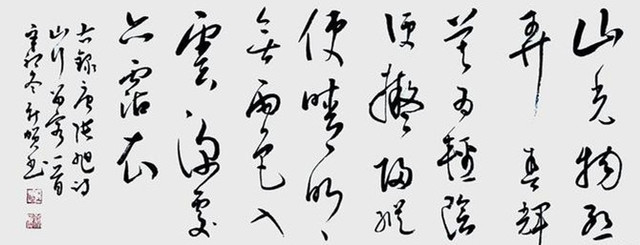 山光物態
弄春輝
莫為輕陰
便擬歸縱
使晴明
無雨色入
雲深處
亦霑衣
右錄唐張旭詩
山行留客一首
辛卯冬书